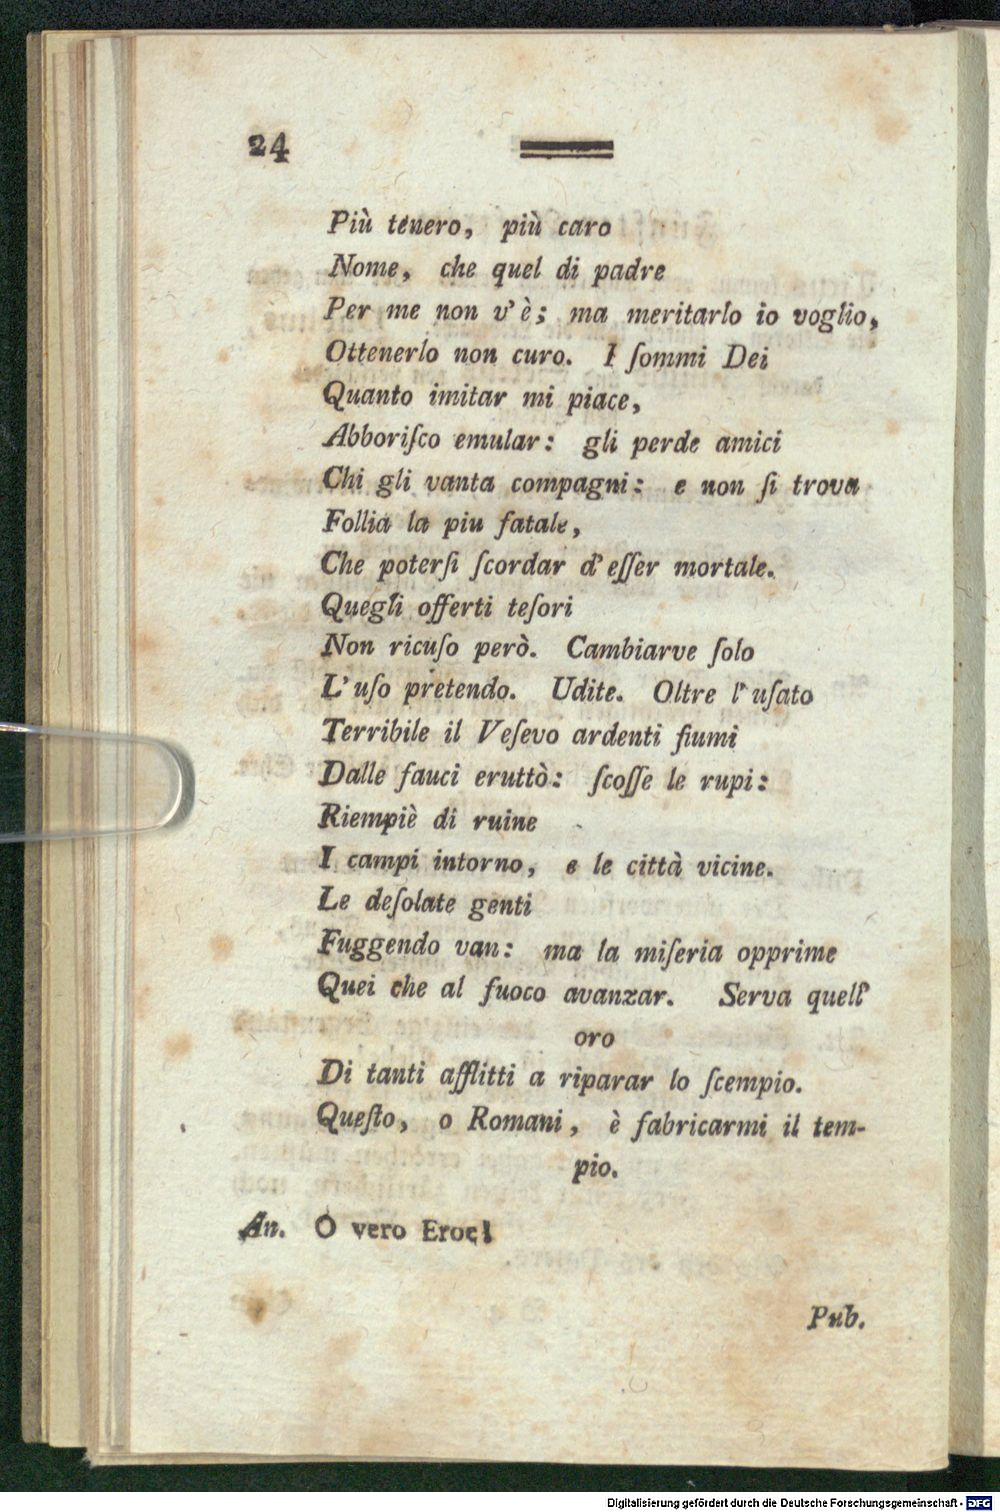 24
Più tenero, più caro
Nome, che quel di padre
Per me non v'è; ma meritarlo io voglio,
Ottenerlo non curo. I ſommi Dei
Quanto imitar mi piace,
Abboriſco emular: gli perde amici
Chi gli vanta compagni: e non ſi trova
Follia la piu fatale,
Che poterſi ſcordar d'eſſer mortale.
Quegli offerti teſori
Non ricuſo però. Cambiarve ſolo
L'uſo pretendo. Udite. Oltre l'uſato
Terribile il Veſevo ardenti fiumi
Dalle fauci eruttò: ſcoſſe le rupi:
Riempiè di ruine
I campi intorno, e le città vicine.
Le deſolate genti
Fuggendo van: ma la miſeria opprime
Quei che al fuoco avanzar. Serva quell'
oro
Di tanti afflitti a riparar lo ſcempio.
Queſto, o Romani, è fabricarmi il tem-
pio.
An. O vero Eroe!
Pub.
Digitalisierung gefördert durch die Deutsche Forschungsgemeinschaft - DFG